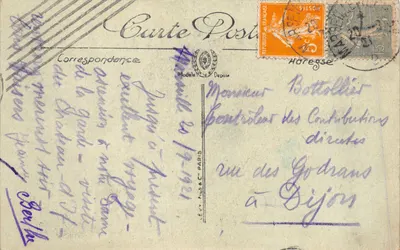 Carte Postale
Correspondance
Adresse
Marseille 20/9-1921
Jusqu'à présent
excellent voyage
ascension à notre Dame
de la garde - visite
du Chateau d'If -
Bons baisers
Berthe
Monsieur Bottollier
Contrôleur des Contributions
directes
rue des Godrans
à Dijon